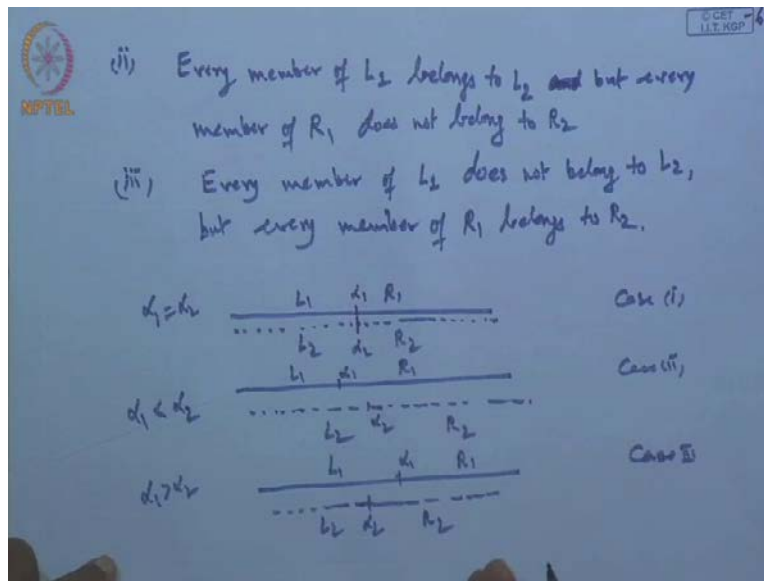 © CET
I.I.T. KGP
-6
NPTEL
(ii) Every member of L₁ belongs to L₂ but every
member of R₁ does not belong to R₂
(iii) Every member of L₁ does not belong to L₂,
but every member of R₁ belongs to R₂.
α₁ = α₂ L₁ α₁ R₁ Case (i)
L₂ α₂ R₂
L₁ α₁ R₁ Case (ii)
α₁ < α₂
L₂ α₂ R₂
L₁ α₁ R₁ Case III
α₁ > α₂
L₂ α₂ R₂